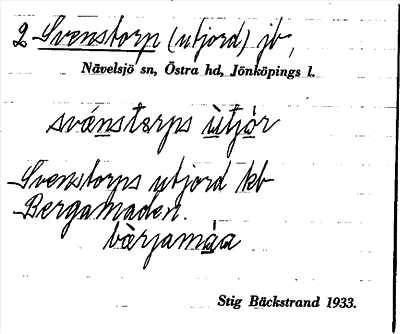 2 Svenstorp (utjord) jb,
Nävelsjö sn, Östra hd, Jönköpings l.
svánstərps ùtjòr
Svenstorps utjord kb
Bergamaden.
bàrjamáa
Stig Bäckstrand 1933.